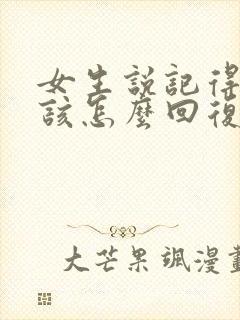 女生説記得
該怎麼回復
大芒果颯漫畫